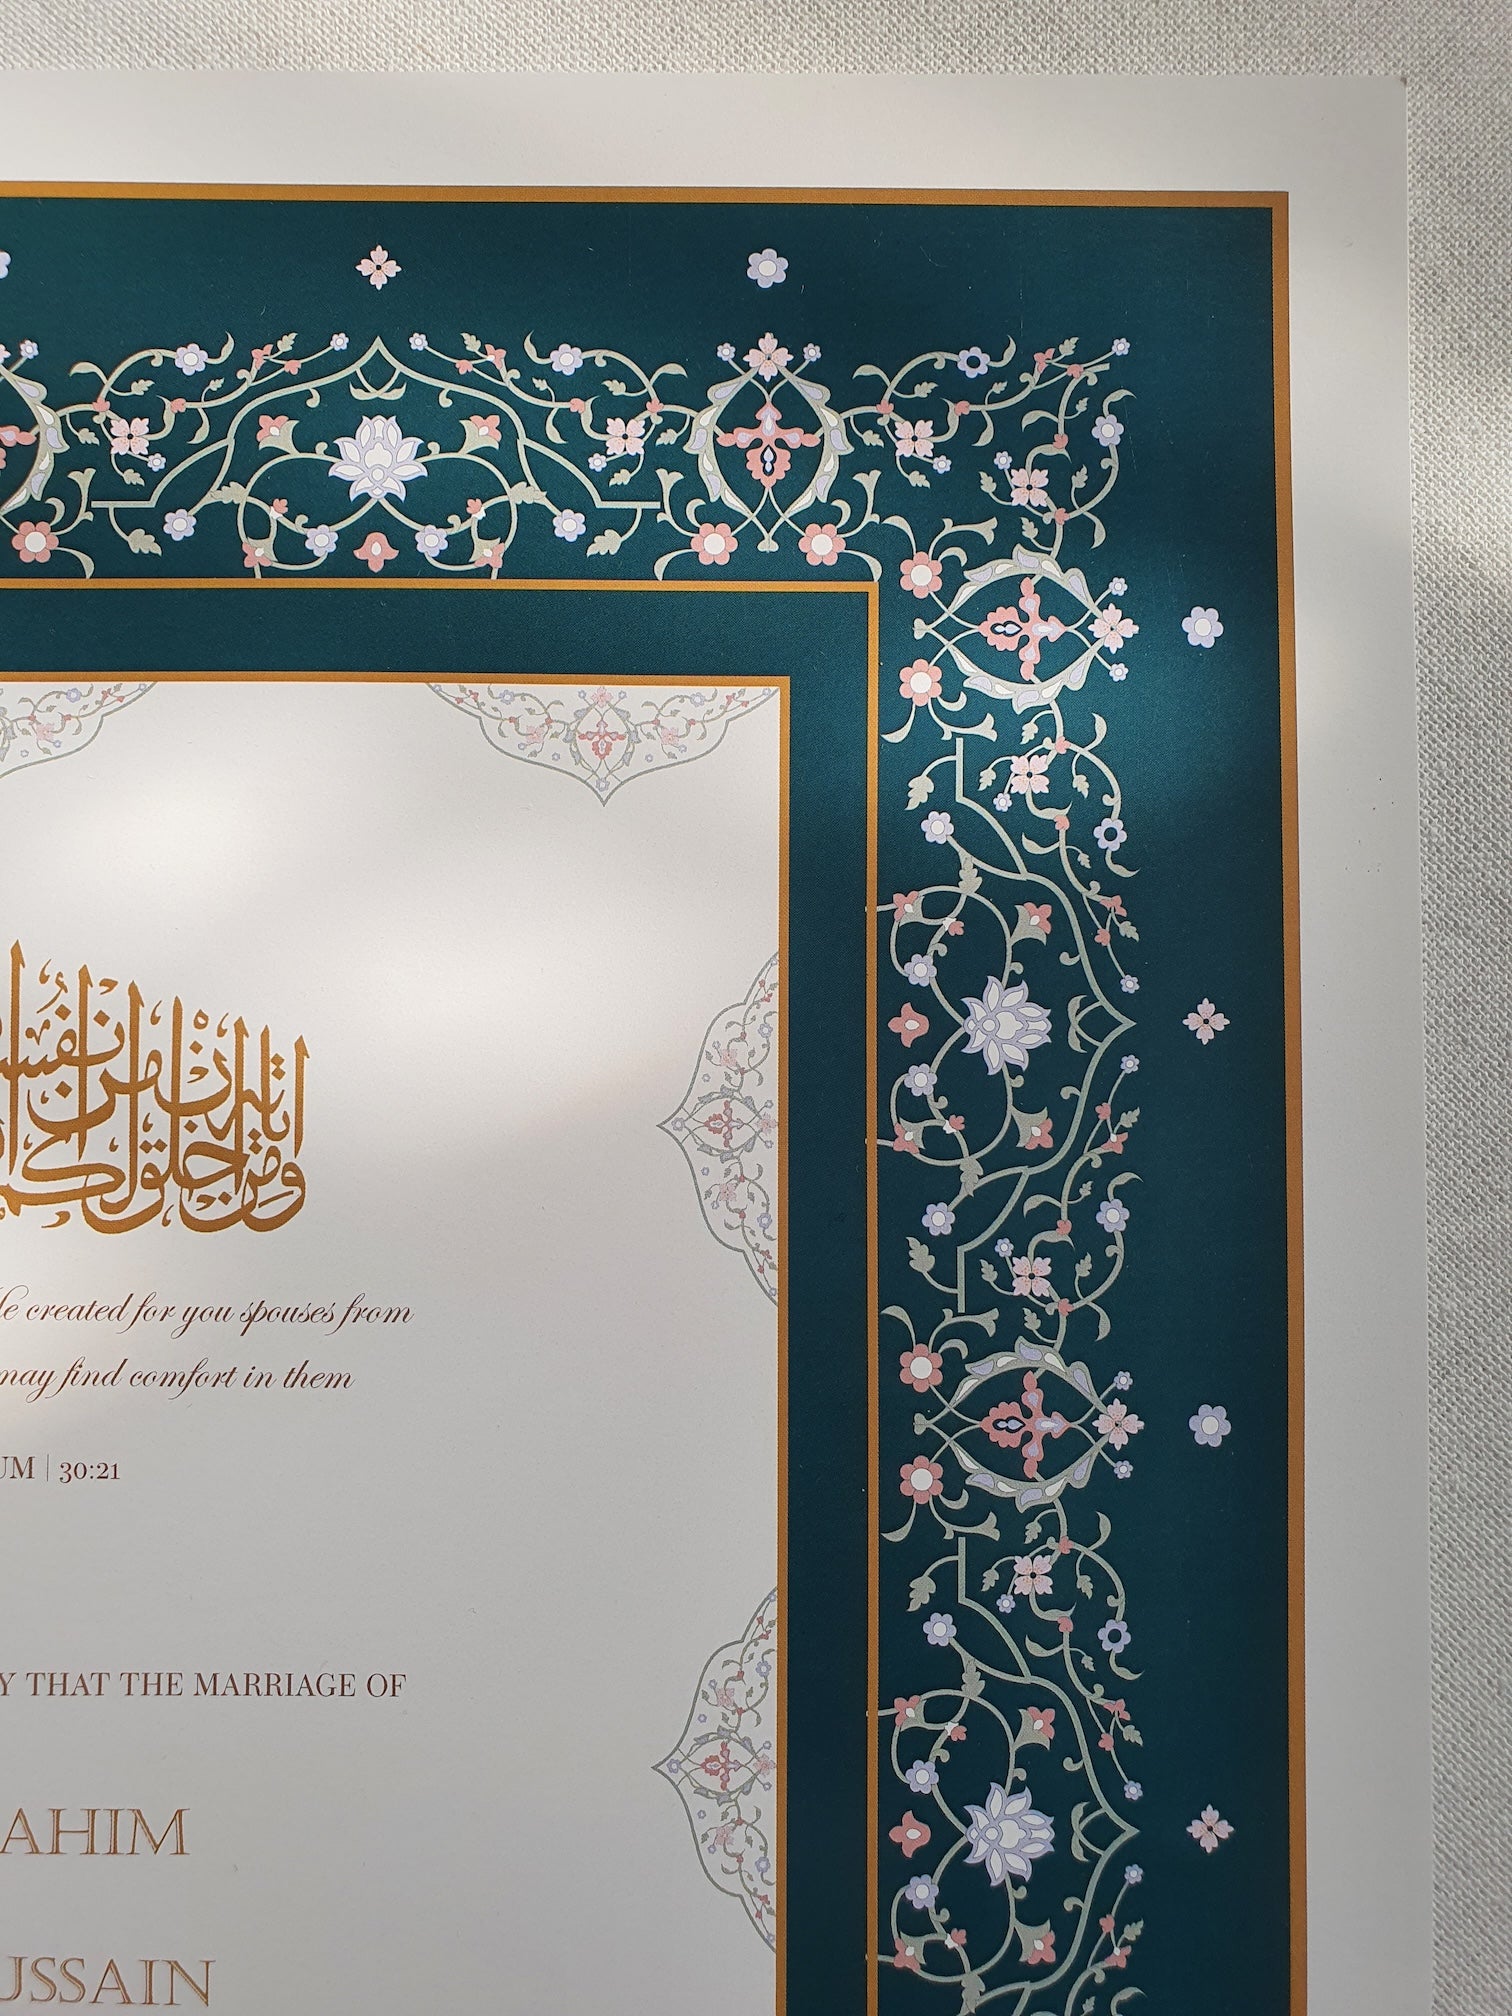 ومن اياته ان خلق لكم من انفس
created for you spouses from
may find comfort in them
UM | 30:21
Y THAT THE MARRIAGE OF
AHIM
USSAIN